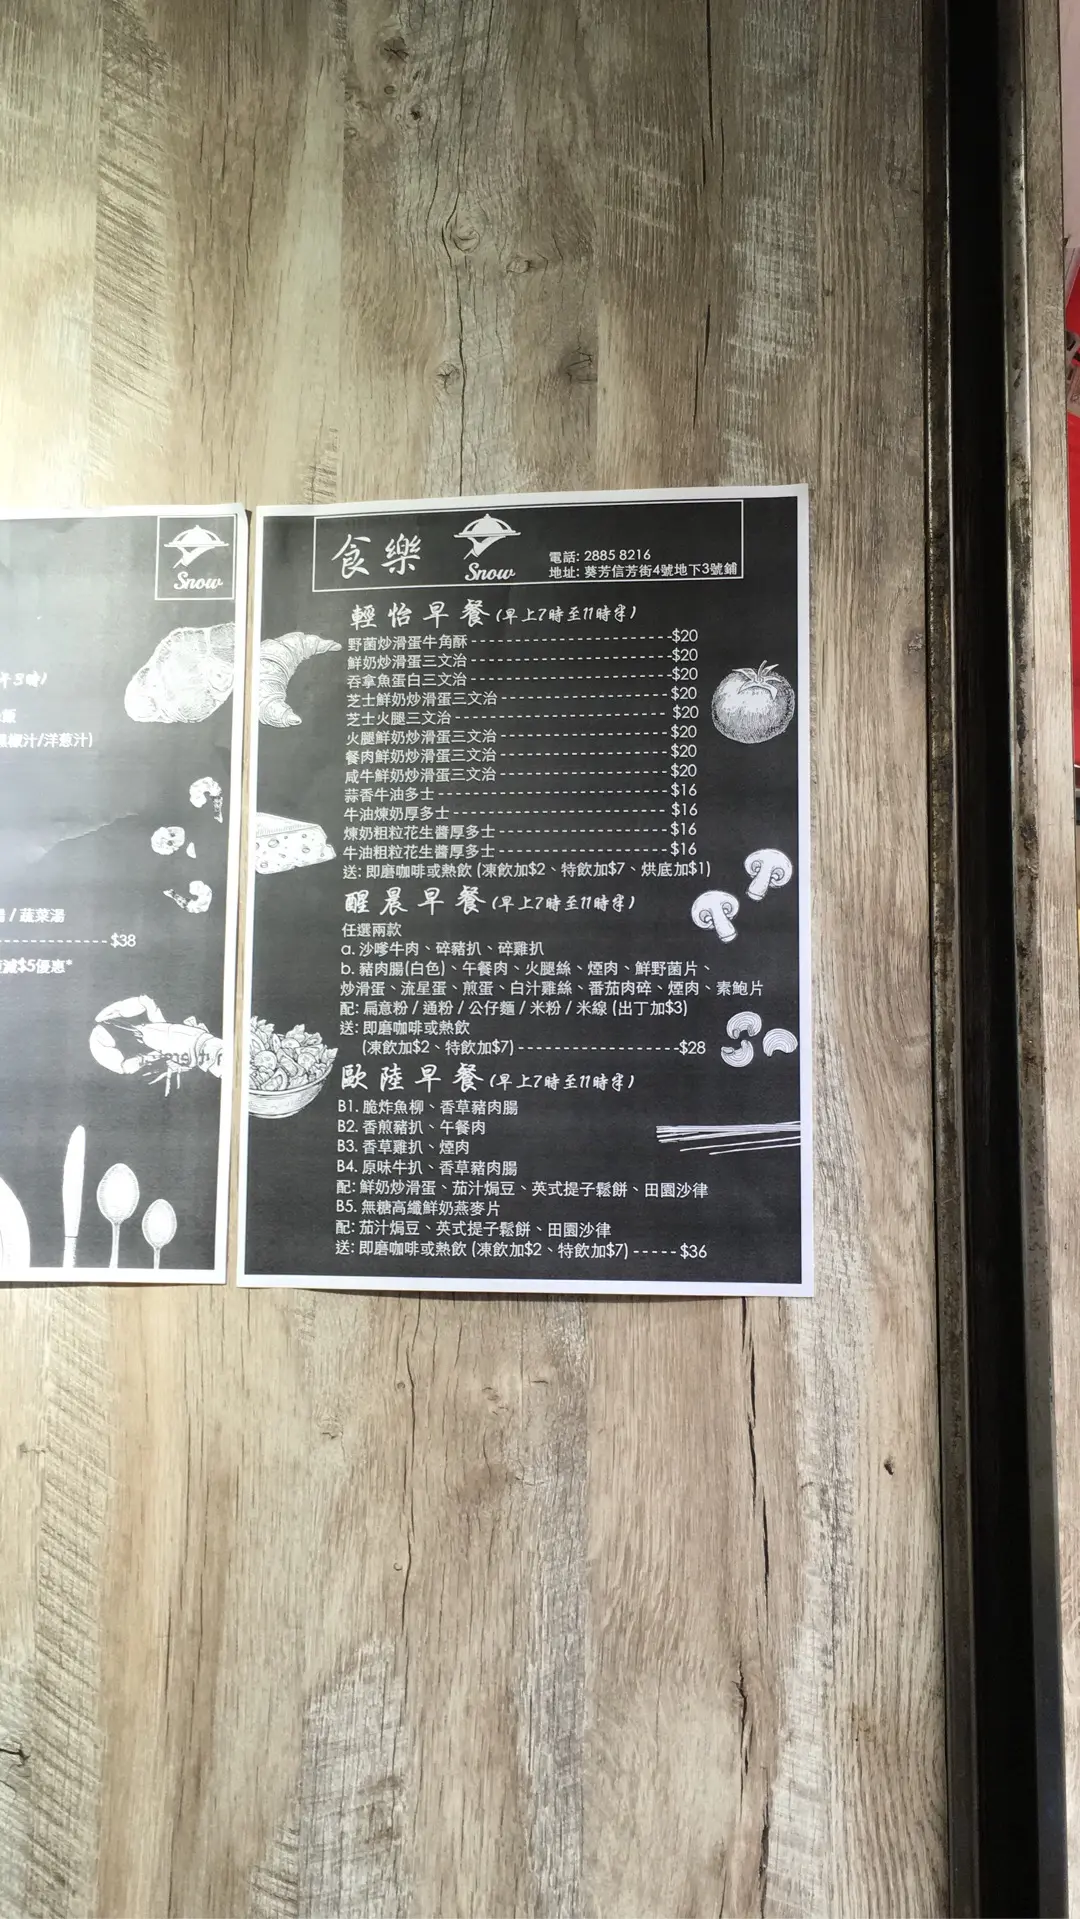 Snow
午3時)
飯
黑椒汁/洋蔥汁)
湯 / 蔬菜湯
$38
減$5優惠*
食樂
Snow
電話: 2885 8216
地址: 葵芳信芳街4號地下3號鋪
輕怡早餐(早上7時至11時半)
野菌炒滑蛋牛角酥 $20
鮮奶炒滑蛋三文治 $20
吞拿魚蛋白三文治 $20
芝士鮮奶炒滑蛋三文治 $20
芝士火腿三文治 $20
火腿鮮奶炒滑蛋三文治 $20
餐肉鮮奶炒滑蛋三文治 $20
咸牛鮮奶炒滑蛋三文治 $20
蒜香牛油多士 $16
牛油煉奶厚多士 $16
煉奶粗粒花生醬厚多士 $16
牛油粗粒花生醬厚多士 $16
送: 即磨咖啡或熱飲 (凍飲加$2、特飲加$7、烘底加$1)
醒晨早餐(早上7時至11時半)
任選兩款
a. 沙嗲牛肉、碎豬扒、碎雞扒
b. 豬肉腸(白色)、午餐肉、火腿絲、煙肉、鮮野菌片、
炒滑蛋、流星蛋、煎蛋、白汁雞絲、番茄肉碎、煙肉、素鮑片
配: 扁意粉 / 通粉 / 公仔麵 / 米粉 / 米線 (出丁加$3)
送: 即磨咖啡或熱飲
(凍飲加$2、特飲加$7) $28
歐陸早餐(早上7時至11時半)
B1. 脆炸魚柳、香草豬肉腸
B2. 香煎豬扒、午餐肉
B3. 香草雞扒、煙肉
B4. 原味牛扒、香草豬肉腸
配: 鮮奶炒滑蛋、茄汁焗豆、英式提子鬆餅、田園沙律
B5. 無糖高纖鮮奶燕麥片
配: 茄汁焗豆、英式提子鬆餅、田園沙律
送: 即磨咖啡或熱飲 (凍飲加$2、特飲加$7) $36